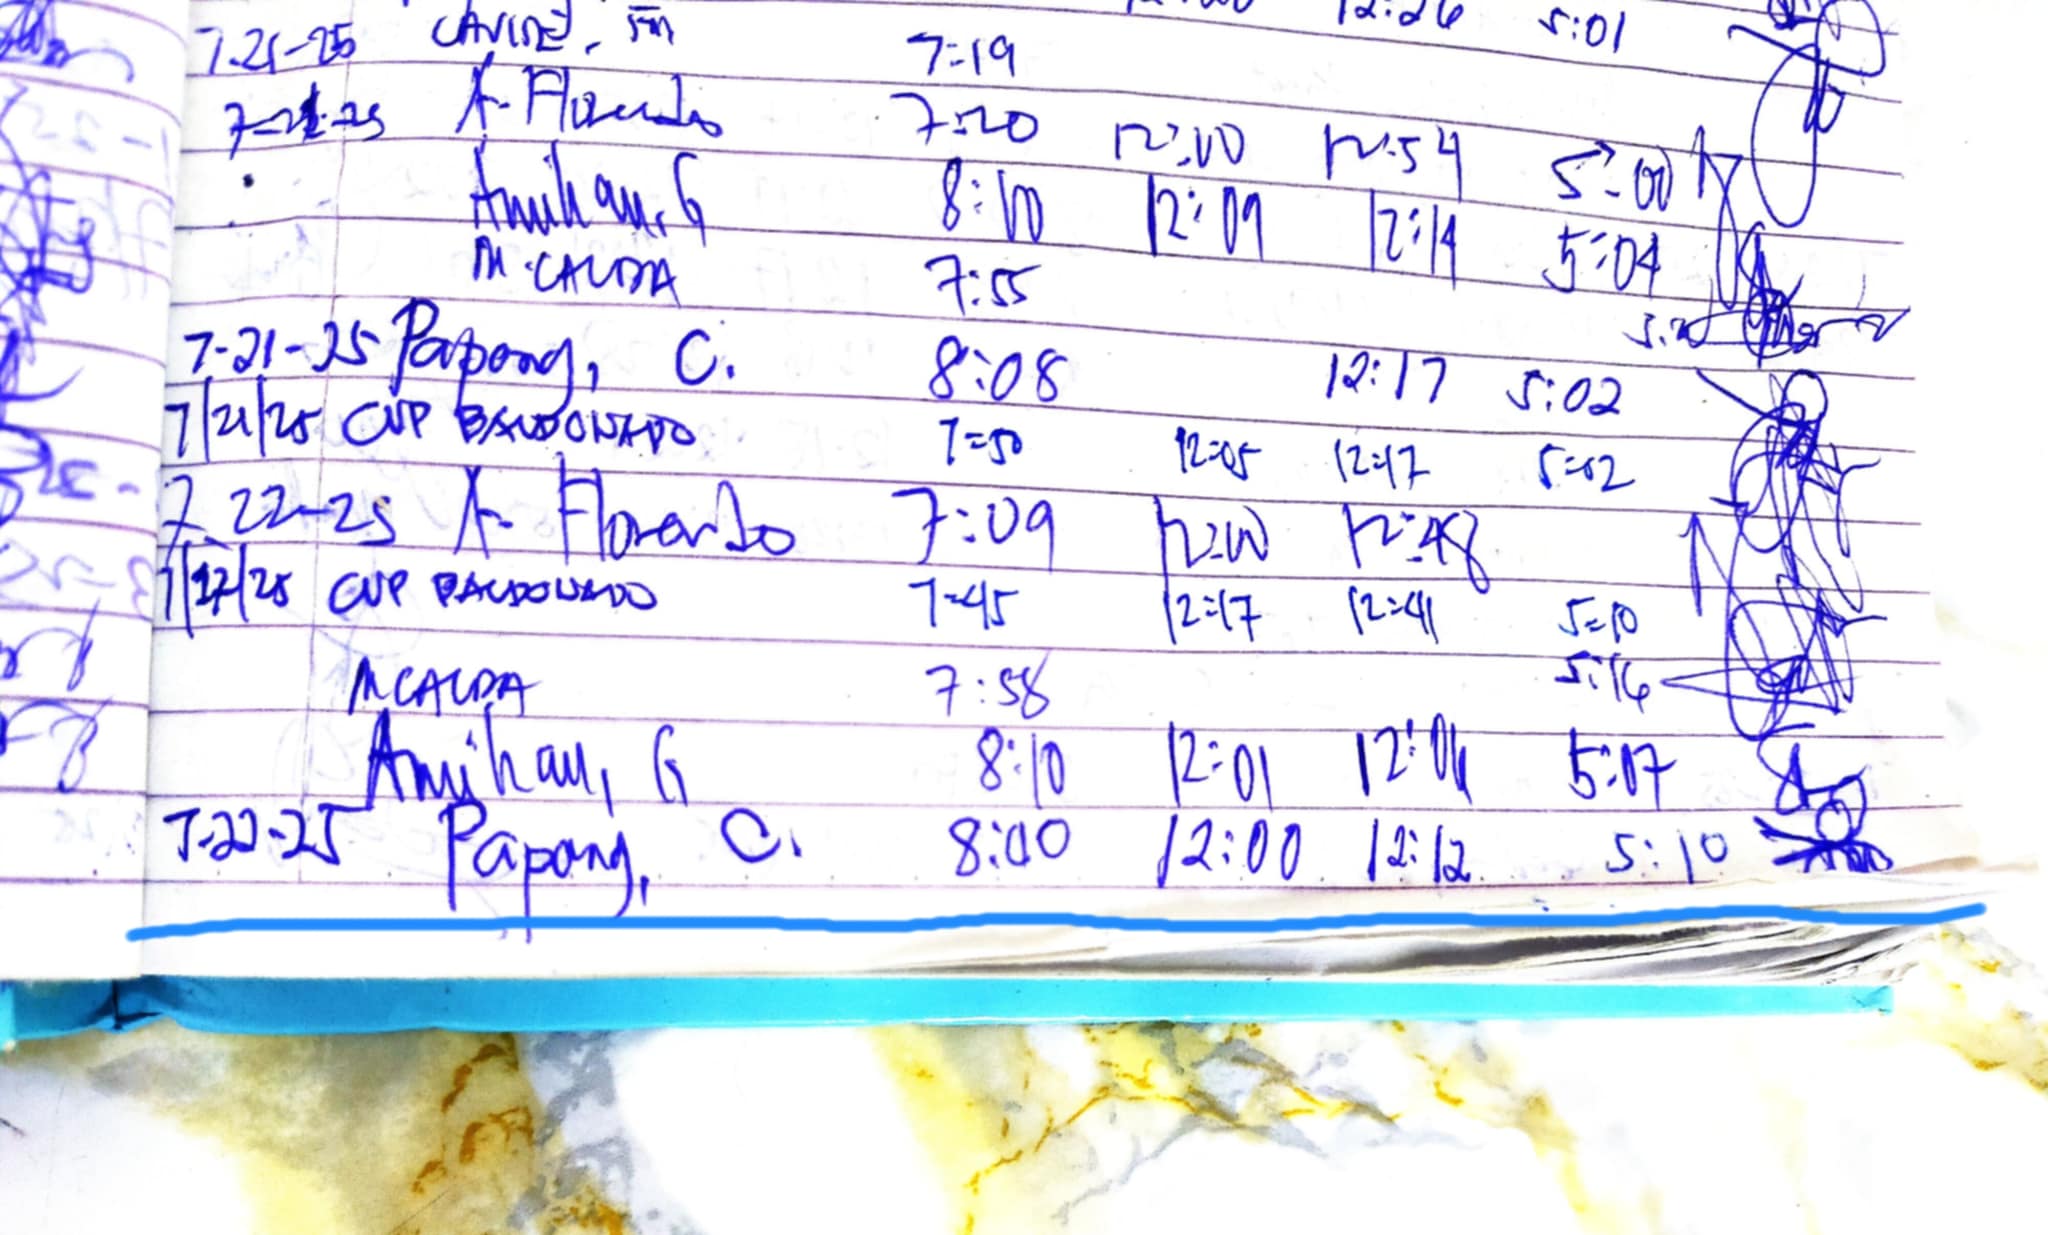 12:26 5:01
7-21-25 CAVITE, 7:19
7-21-25 A. Florendo 7:20 12:00 12:54 5:00
Amihan, G 8:10 12:09 12:14 5:04
M. CALDA 7:55
7-21-25 Papong, C. 8:08 12:17 5:02
7/21/25 CVP BALDONADO 7:50 12:05 12:17 5:02
7-22-25 A. Florendo 7:09 12:00 12:48
7/22/25 CVP BALDONADO 7:45 12:17 12:41 5:10
M CALDA 7:58 5:16
Amihan, G 8:10 12:01 12:04 5:07
7-22-25 Papong, C. 8:00 12:00 12:12 5:10